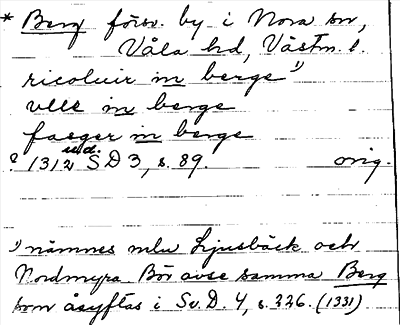 * Berg försv. by i Nora sn,
Våla hd, Västm. l.
ricoluir in berge ¹)
velle in berge
faeger in berge
? 1312 u.d. SD 3, s. 89. orig.
¹) nämnes mlu Ljusbäck och
Nordmyra. Bör avse samma Berg
som åsyftas i Sv. D. 4, s. 326. (1331)